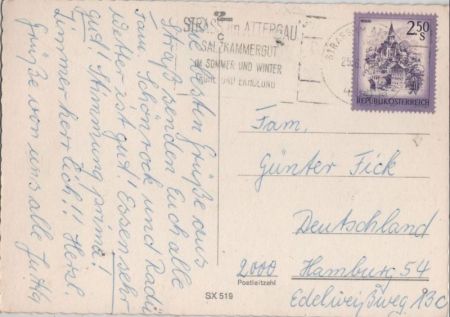 STRASS im ATTERGAU
SALZKAMMERGUT
IM SOMMER UND WINTER
RUHE UND ERHOLUNG
2.50
S
REPUBLIK ÖSTERREICH
Die besten Grüße aus
Straß senden Euch alle
Fam. Schönrock und Radü
Wetter ist gut! Essen sehr
gut! Stimmung prima!
Zimmer herrlich!! Herzl.
Grüße von uns alle Jutta
Fam.
Günter Fick
Deutschland
2000 Hamburg 54
Postleitzahl
Edelweißweg 13c
SX 519